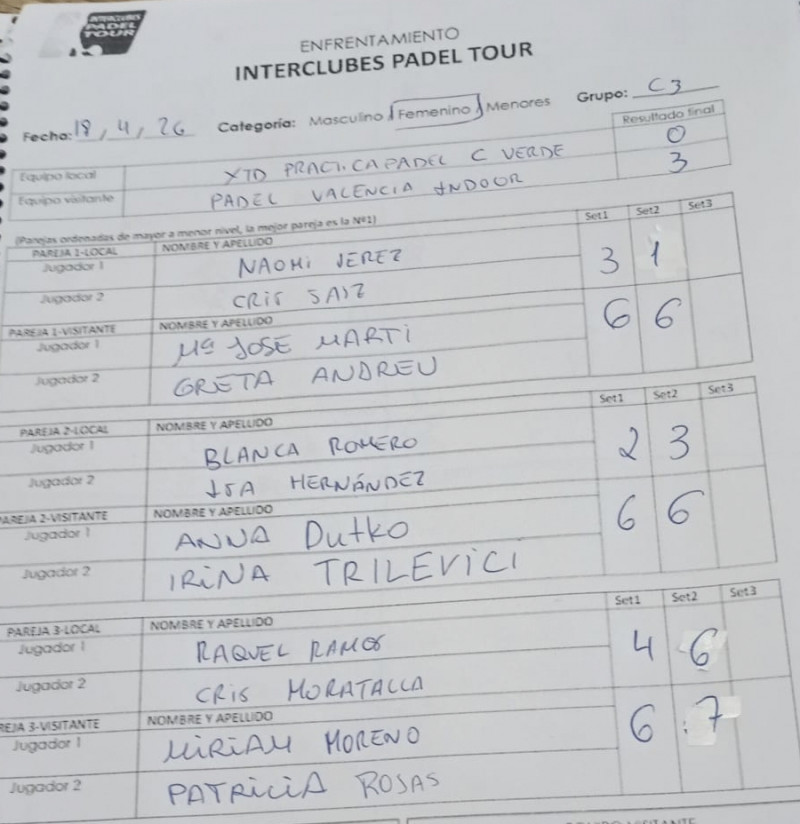 INTERCLUBES
PADEL
TOUR
ENFRENTAMIENTO
INTERCLUBES PADEL TOUR
Fecha: 18, 4, 26 Categoría: Masculino Femenino Menores Grupo: C3
Resultado final
Equipo local XTD PRACTICAPADEL C VERDE 0
Equipo visitante PADEL VALENCIA INDOOR 3
(Parejas ordenadas de mayor a menor nivel, la mejor pareja es la Nº1) Set1 Set2 Set3
PAREJA 1-LOCAL NOMBRE Y APELLIDO
Jugador 1 NAOMI JEREZ 3 1
Jugador 2 CRIS SAIZ
PAREJA 1-VISITANTE NOMBRE Y APELLIDO 6 6
Jugador 1 Mª JOSE MARTI
Jugador 2 GRETA ANDREU
Set1 Set2 Set3
PAREJA 2-LOCAL NOMBRE Y APELLIDO
Jugador 1 BLANCA ROMERO 2 3
Jugador 2 ISA HERNÁNDEZ
PAREJA 2-VISITANTE NOMBRE Y APELLIDO 6 6
Jugador 1 ANNA DUTKO
Jugador 2 IRINA TRILEVICI
Set1 Set2 Set3
PAREJA 3-LOCAL NOMBRE Y APELLIDO
Jugador 1 RAQUEL RAMOS 4 6
Jugador 2 CRIS MORATALLA
REJA 3-VISITANTE NOMBRE Y APELLIDO 6 7
Jugador 1 MIRIAM MORENO
Jugador 2 PATRICIA ROSAS